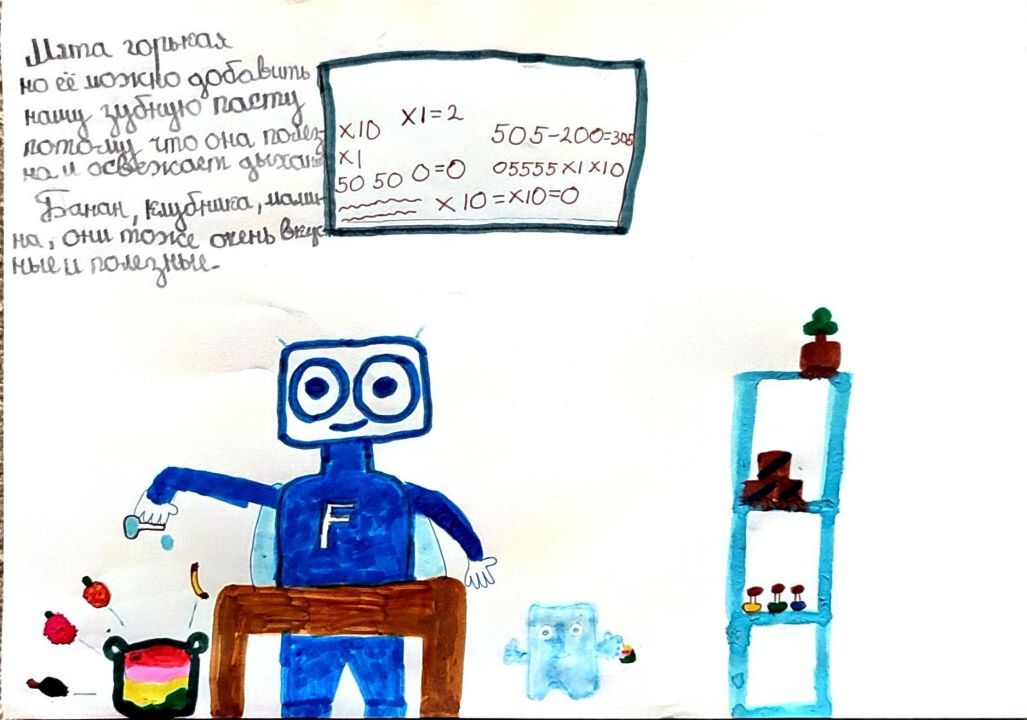 Мята горькая
но её можно добавить
нашу зубную пасту
потому что она полез-
на и освежает дыхани
Банан, клубника, мали-
на, они тоже очень вкус-
ные и полезные.
x10 x1=2 505-200=305
x1
50 50 0=0 05555x1x10
x10=x10=0
F